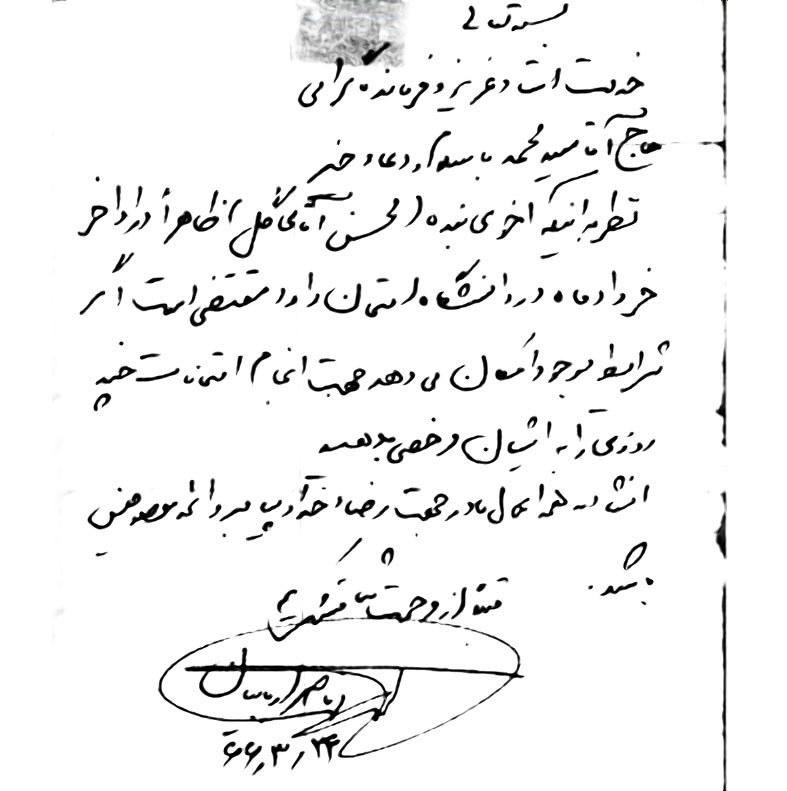 بسمه تعالی
خدمت استاد عزیز و فرمانده گرامی
حاج آقا سید محمد با سلام و دعاء خیر
نظر به اینکه اخوی بنده (محسن آقائی گل) ظاهراً در اواخر
خرداد ماه در دانشگاه امتحان دارد مقتضی است اگر
شرایط موجود امکان می دهد جهت انجام امتحانات چند
روزی را به ایشان مرخصی بدهید
انشاء... همه اعمال ما در جهت رضاء خدا و پیامبر و ائمه معصومین
باشد.
قبلا از زحمت شما متشکریم
۶۶٫۳٫۲۴